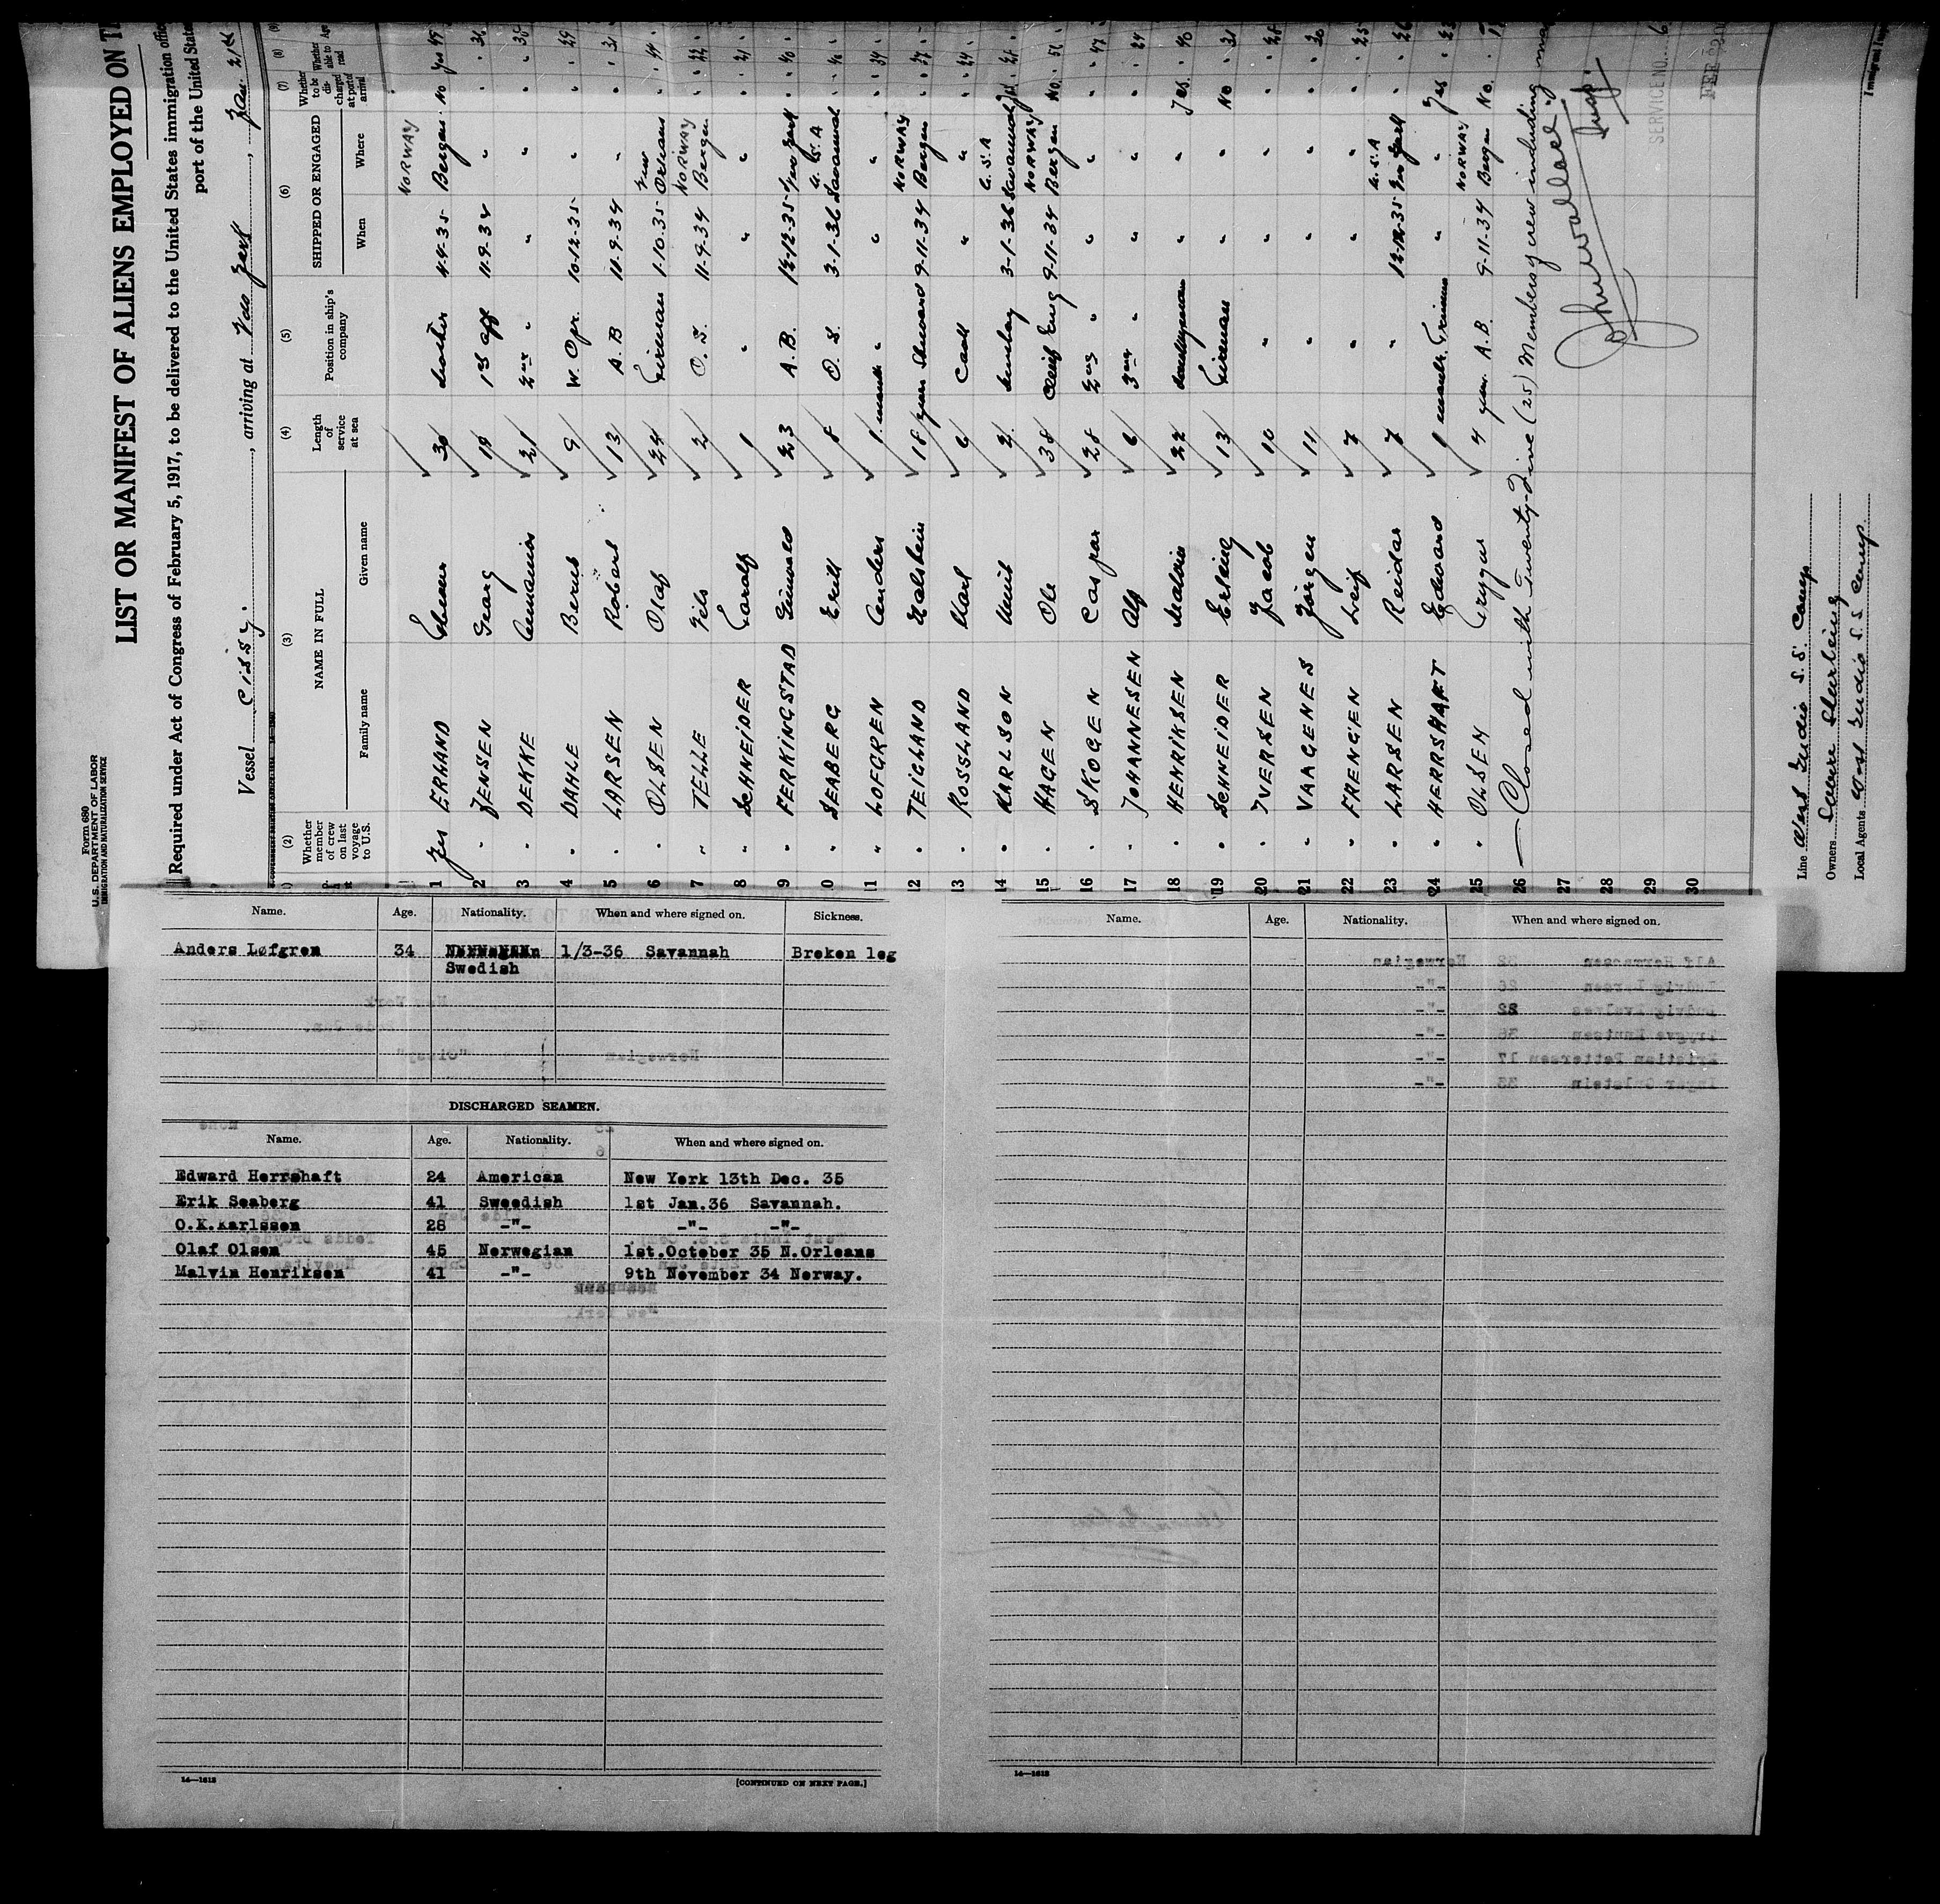 Form 680
U.S. DEPARTMENT OF LABOR
IMMIGRATION AND NATURALIZATION SERVICE
LIST OR MANIFEST OF ALIENS EMPLOYED ON T
Required under Act of Congress of February 5, 1917, to be delivered to the United States immigration offic
port of the United State
Vessel Cissy., arriving at New York, Jan. 21st
(2) Whether member of crew on last voyage to U.S.
(3) NAME IN FULL
Family name Given name
(4) Length of service at sea
(5) Position in ship's company
(6) SHIPPED OR ENGAGED
When Where
(7) Whether to be discharged at port of arrival
(8) Whether able to read
(9) Age
NORWAY
1 Yes ERHAND Einar 30 4-4-35 Bergen No Yes 49
2 " JENSEN Georg 19 1st off 11-9-34 " " " 36
3 " DEKKE Annanias 21 2nd " " " " " 38
4 " DAHLE Bernt 9 W. Opr. 10-12-35 " " " 29
5 " LARSEN Robert 13 A.B 11-9-34 " " " 31
6 " OLSEN Olaf 24 Fireman 1-10-35 New Orleans " " 44
NORWAY
7 " TELLE Nils 2 O.S. 11-9-34 Bergen " " 22
8 " SCHNEIDER Harald 1 " " " " " 21
9 " FERKINGSTAD Ginvald 23 A.B. 12-12-35 New York " " 40
U.S.A
10 " SEABERG Erik 8 O.S. 3-1-36 Savannah " " 40
11 " LOFGREN Anders 1 month " " " " " 34
NORWAY
12 " TEIGLAND Halstein 18 years Steward 9-11-34 Bergen " " 37
13 " ROSSLAND Karl 6 Cook " " " " 24
U.S.A
14 " KARLSON Knut 2 3-1-36 Savannah Yes " 28
NORWAY
15 " HAGEN Ole 38 Chief Eng 9-11-34 Bergen No. " 56
16 " SKOGEN Caspar 28 2nd " " " " " 47
17 " JOHANNESEN Alf 6 3rd " " " " " 29
18 " HENRIKSEN Malvin 22 Donkeyman " " Yes. " 40
19 " SCHNEIDER Erling 13 Fireman " " No " 31
20 " IVERSEN Jacob 10 " " " " 28
21 " VAAGENES Jörgen 11 " " " " 30
22 " FRENGEN Leif 7 " " " " 25
U.S.A
23 " LARSEN Reidar 7 " 12-12-35 New York " 26
24 " HERRSHAFT Edward 1 month Trimmer " " Yes " 23
NORWAY
25 " OLSEN Trygve 4 year. A.B. 9-11-34 Bergen No. "
26 — Closed with Twenty-Five (25) Members of crew including master
27
28
29
30
SERVICE NO. 6
FEB
Line West India S.S. Comp
Owners
Local Agents West India S.S Comp.
Immigrant Inspe
Name. Age. Nationality. When and where signed on. Sickness.
Anders Løfgren 34 Norwegian 1/3-36 Savannah Broken leg
Swedish
DISCHARGED SEAMEN.
Name. Age. Nationality. When and where signed on.
Edward Herrshaft 24 American New York 13th Dec. 35
Erik Seaberg 41 Sweedish 1st Jan.36 Savannah.
O.K.Karlssen 28 -"- -"- -"-
Olaf Olsen 45 Norwegian 1st.October 35 N.Orleans
Malvin Henriksen 41 -"- 9th November 34 Norway.
14—1618
[CONTINUED ON NEXT PAGE.]
Name. Age. Nationality. When and where signed on.
14—1618